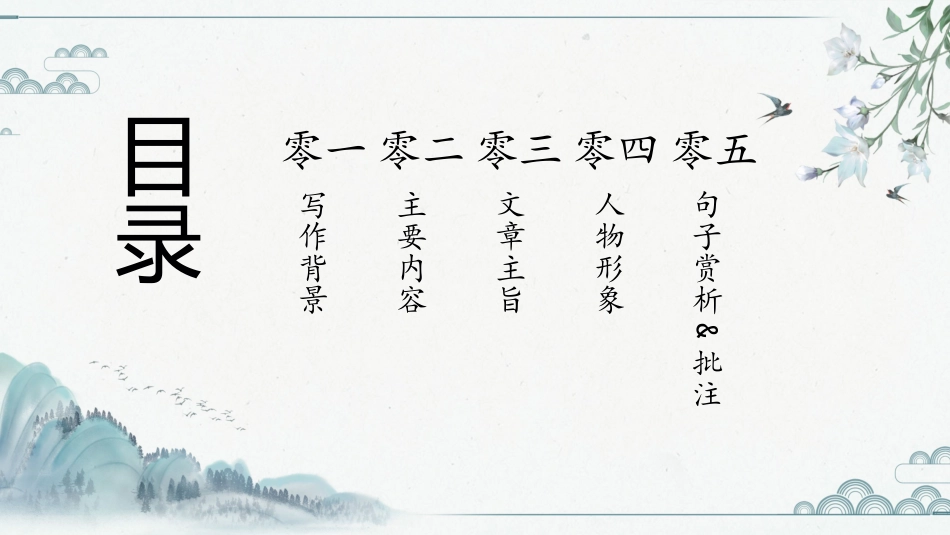 目录
零一
写作背景
零二
主要内容
零三
文章主旨
零四
人物形象
零五
句子赏析&批注